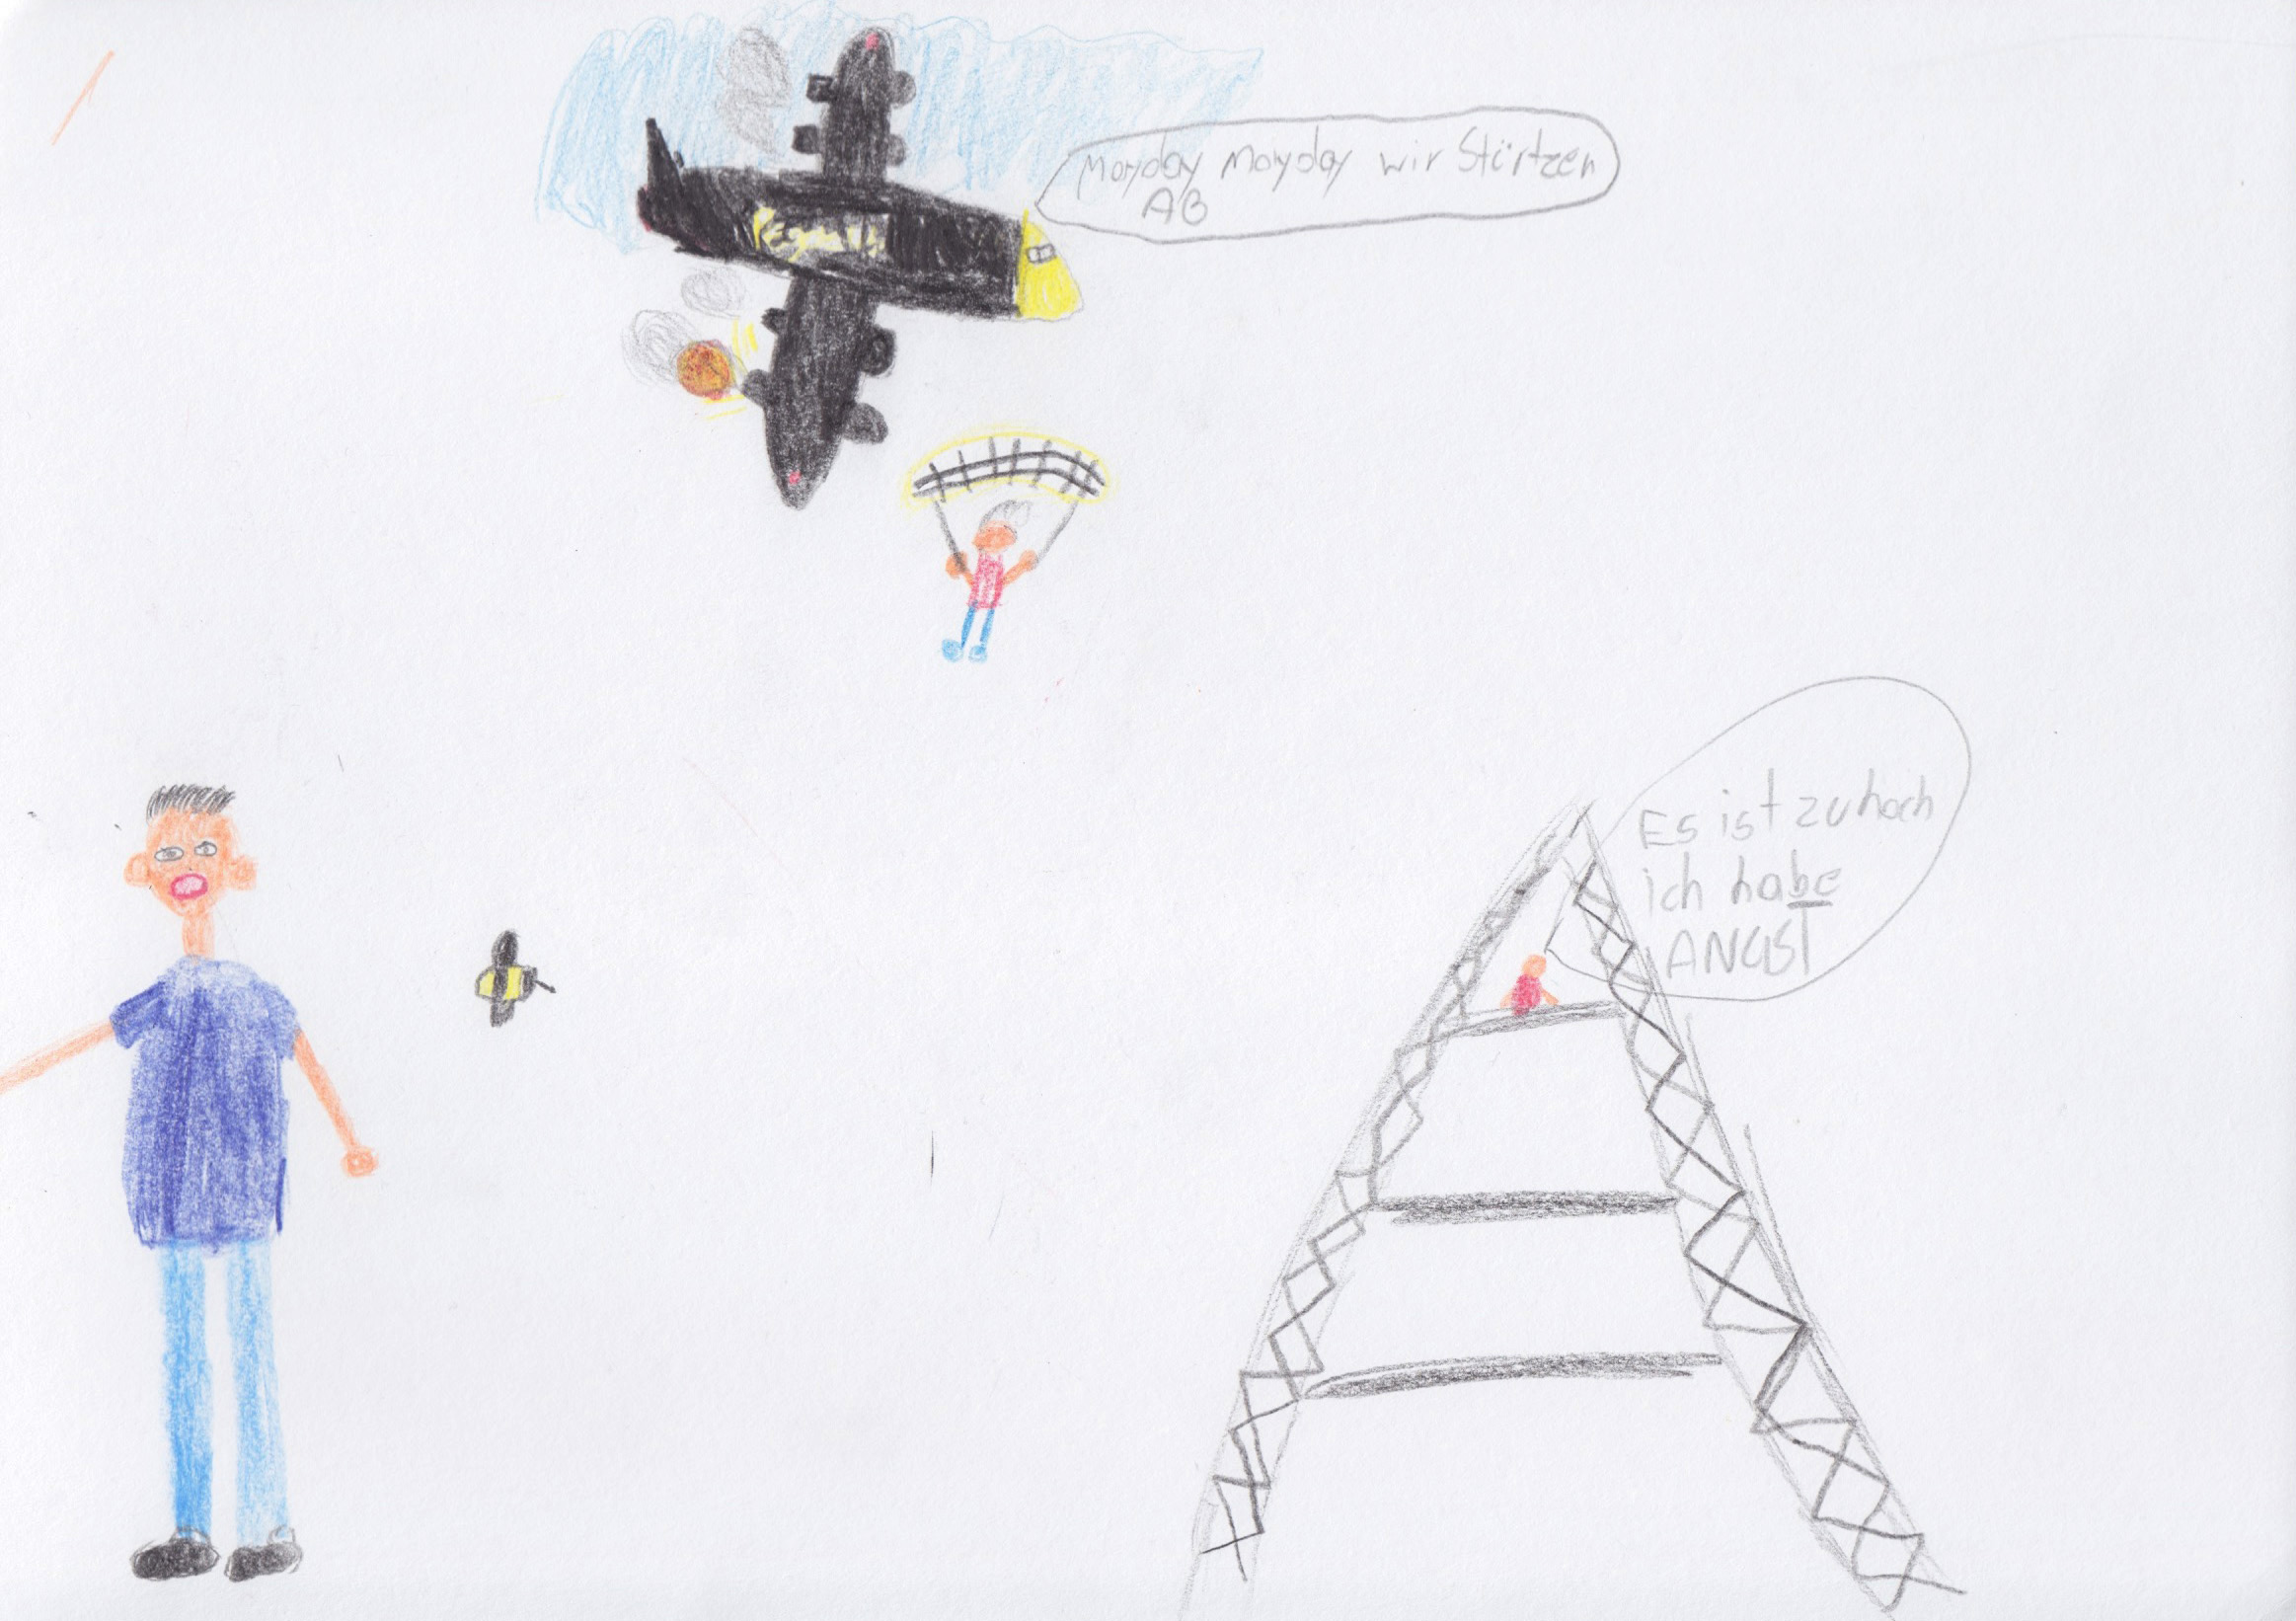 Mayday Mayday wir Stürtzen
AB
Es ist zu hoch
ich habe
ANGST